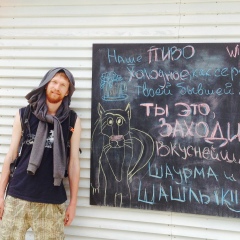 Наше ПИВО W
Холодное, как сердце
твоей бывшей...
ТЫ ЭТО,
ЗАХОДИ
Вкуснейш
ШАУРМА и
ШАШЛЫК!!